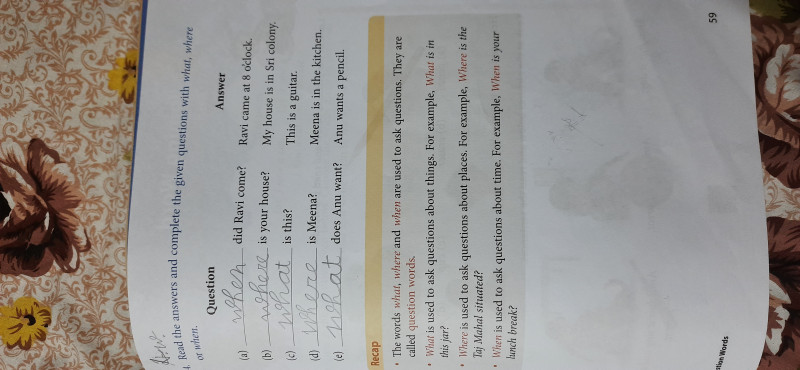 H.W.
4. Read the answers and complete the given questions with what, where
or when.
Question Answer
(a) when did Ravi come? Ravi came at 8 o'clock.
(b) where is your house? My house is in Sri colony.
(c) what is this? This is a guitar.
(d) where is Meena? Meena is in the kitchen.
(e) what does Anu want? Anu wants a pencil.
Recap
• The words what, where and when are used to ask questions. They are
called question words.
• What is used to ask questions about things. For example, What is in
this jar?
• Where is used to ask questions about places. For example, Where is the
Taj Mahal situated?
• When is used to ask questions about time. For example, When is your
lunch break?
Words
59